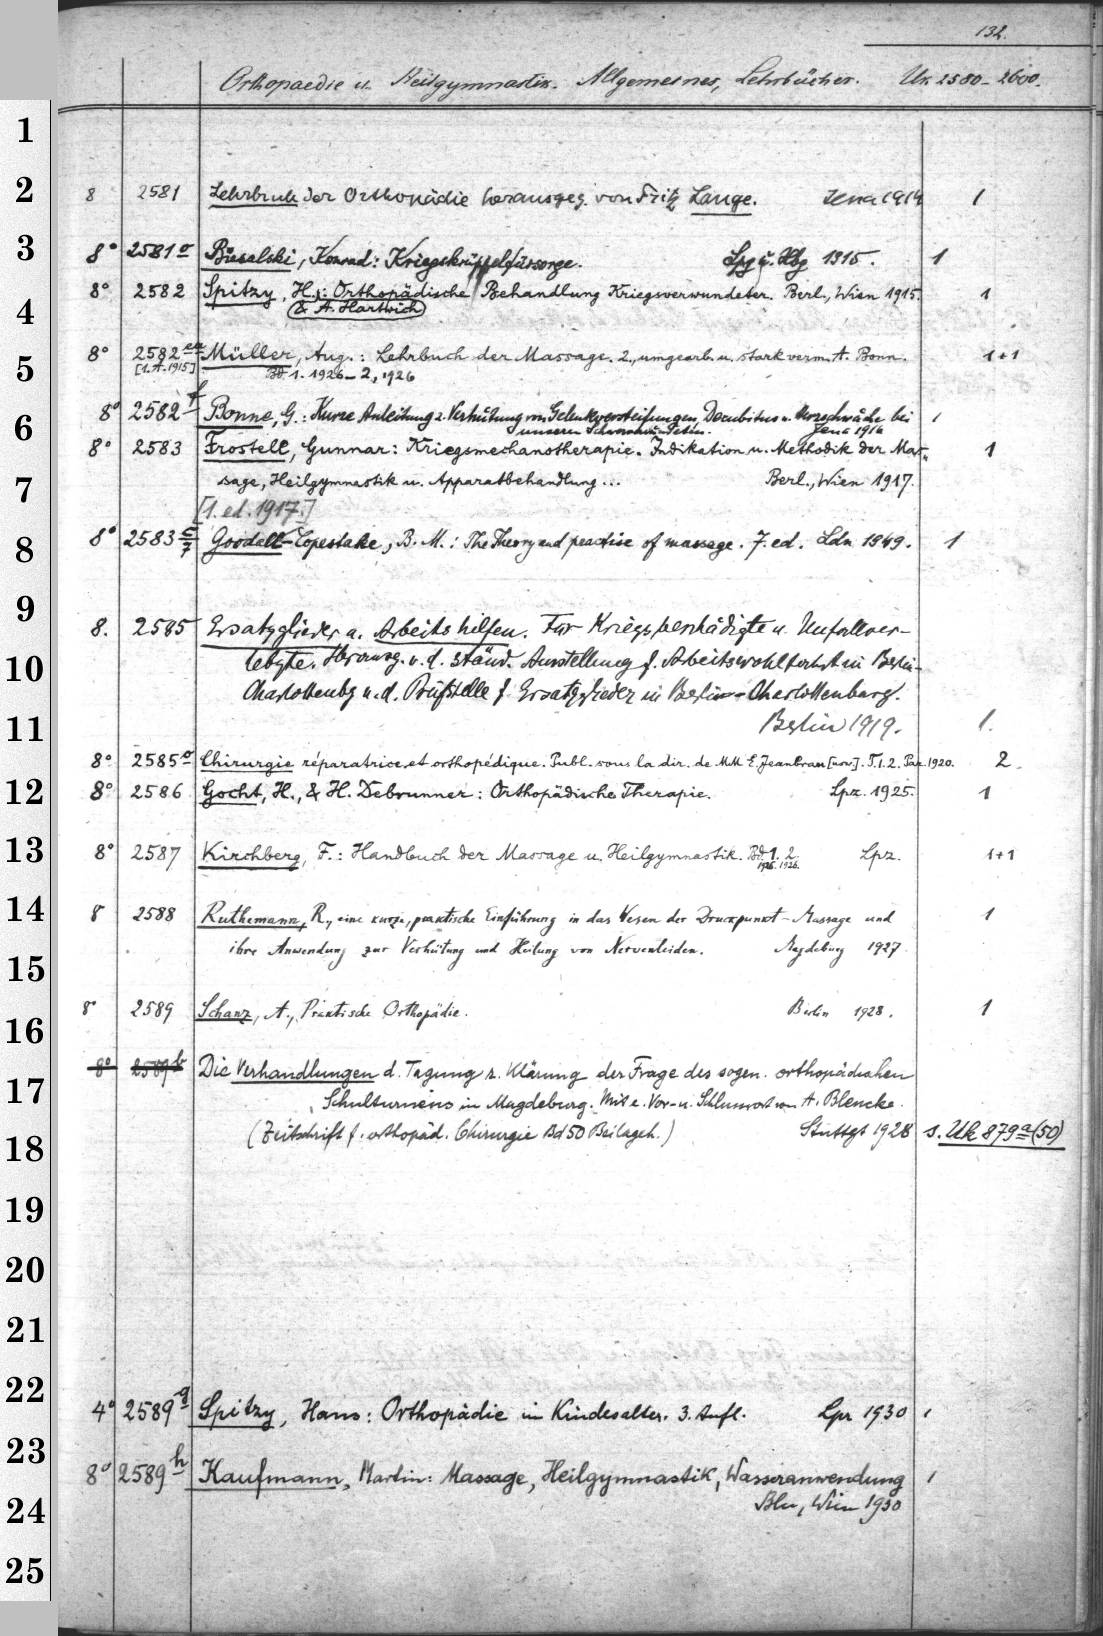 132.
Orthopaedie u. Heilgymnastik. Allgemeines, Lehrbücher. Uk 2580-2600.
1
2
8 2581 Lehrbuch der Orthopädie herausgeg. von Fritz Lange. Jena 1914 1
3
8° 2581 a Biesalski, Konrad: Kriegskrüppelfürsorge. Lpg u. Hbg 1915. 1
8° 2582 Spitzy, H.: Orthopädische Behandlung Kriegsverwundeter. Berl., Wien 1915. 1
& A. Hartwich
4
8° 2582 ea Müller, Aug.: Lehrbuch der Massage. 2., umgearb. u. stark verm. A. Bonn. 1+1
[1. A. 1915] Bd 1. 1926 - 2, 1926
5
8° 2582 f Bonne, G.: Kurze Anleitung z. Verhütung von Gelenkversteifungen, Decubitus u. Herzschwäche bei 1
unseren Jena 1916
6
8° 2583 Frostell, Gunnar: Kriegsmechanotherapie. Indikation u. Methodik der Mas-
sage, Heilgymnastik u. Apparatbehandlung... Berl., Wien 1917. 1
7
[1. ed. 1917.]
8° 2583 c/7 Goodall-Copestake, B. M.: The Theory and practise of massage. 7. ed. Ldn 1949. 1
8
9
8. 2585 Ersatzglieder u. Arbeitshilfen. Für Kriegsbeschädigte u. Unfallver-
letzte. Herausg. v. d. Ständ. Ausstellung f. Arbeitswohlfahrt in Berlin-
10
Charlottenbg u. d. Prüfstelle f. Ersatzglieder in Berlin-Charlottenburg.
Berlin 1919. 1.
11
8° 2585 a Chirurgie réparatrice et orthopédique. Publ. sous la dir. de MM E. Jeanbrau [usw]. T. 1. 2. Par. 1920. 2
12
8° 2586 Gocht, H., & H. Debrunner: Orthopädische Therapie. Lpz. 1925. 1
13
8° 2587 Kirchberg, F.: Handbuch der Massage u. Heilgymnastik. Bd. 1. 2. Lpz. 1+1
1926. 1926.
14
8° 2588 Ruthemann, R., eine kurze, praktische Einführung in das Wesen der Druckpunkt-Massage und 1
ihre Anwendung zur Verhütung und Heilung von Nervenleiden. Magdeburg 1927.
15
8° 2589 Schanz, A., Praktische Orthopädie. Berlin 1928. 1
16
8° 2589 b Die Verhandlungen d. Tagung z. Klärung der Frage des sogen. orthopädischen
17
Schulturnens in Magdeburg. Mit e. Vor- u. Schlusswort von A. Blencke.
(Zeitschrift f. orthopäd. Chirurgie Bd 50 Beilageh.) Stuttgt 1928 s. Uk 879 a (50)
18
19
20
21
22
4° 2589 g Spitzy, Hans: Orthopädie im Kindesalter. 3. Aufl. Lpz 1930 1
23
8° 2589 h Kaufmann, Martin: Massage, Heilgymnastik, Wasseranwendung 1
Bln, Wien 1930
24
25